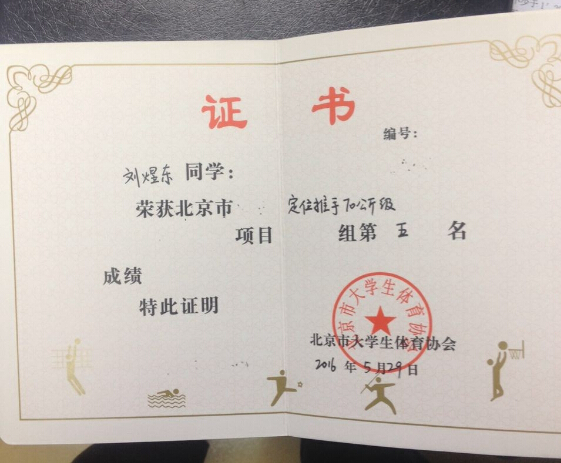 证 书
编号：
刘煜东 同学：
荣获北京市 定位推手70公斤级
项目 组第 五 名
成绩
特此证明
北京市大学生体育协会
北京市大学生体育协会
2016 年 5 月 29 日